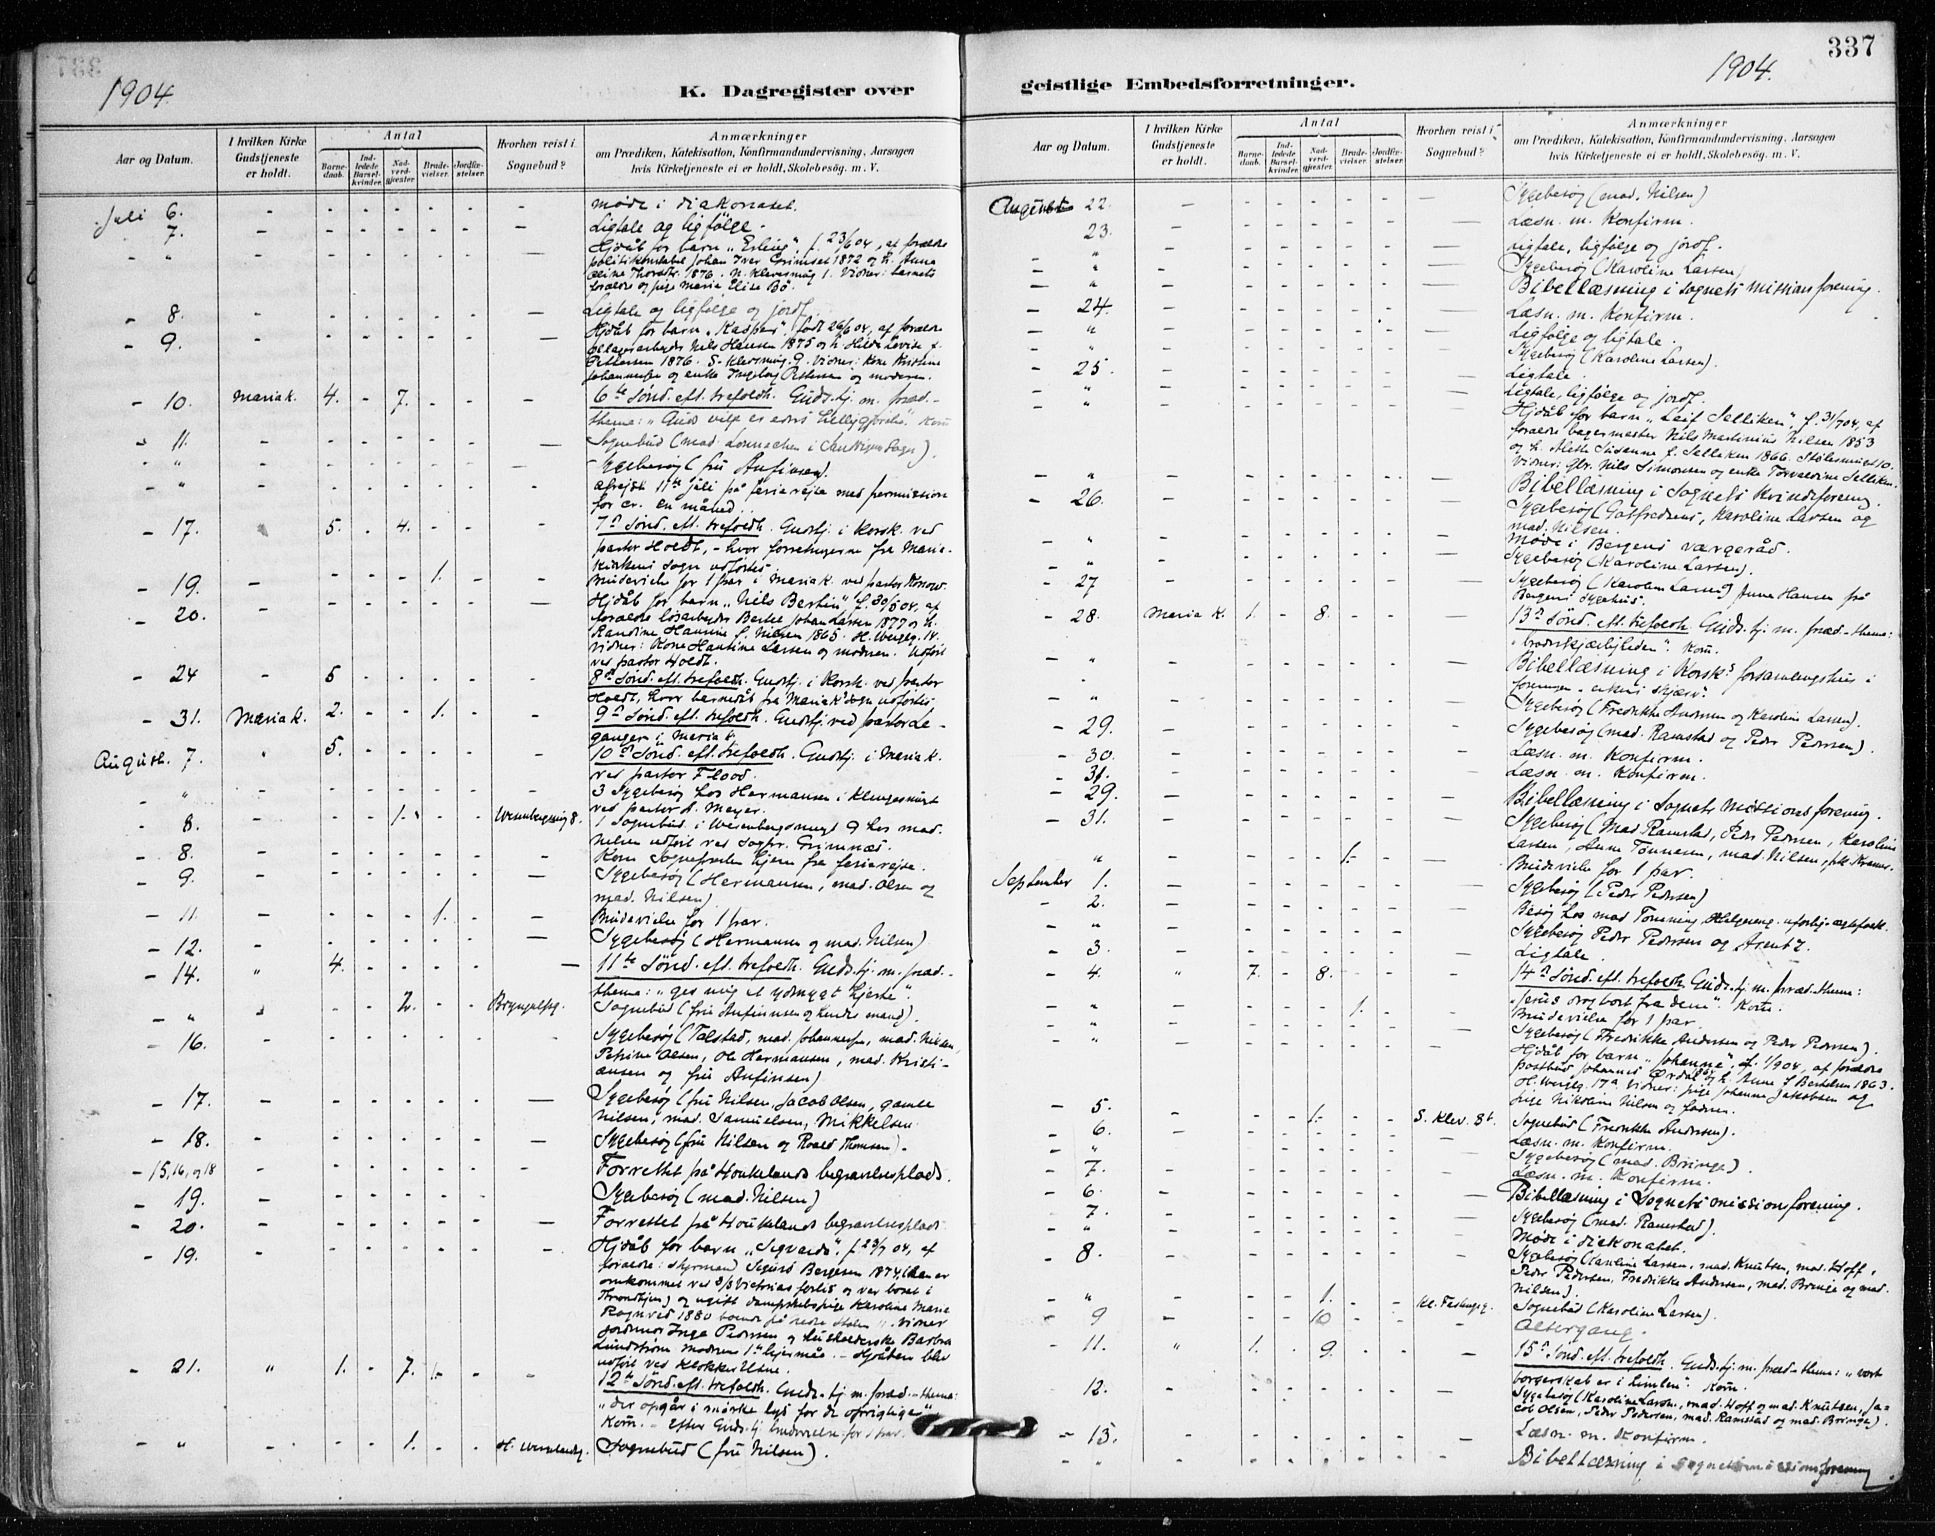 337
1904.
1904.
K. Dagregister over
geistlige Embedsforretninger.
Aar og Datum.
I hvilken Kirke Gudstjeneste er holdt.
Antal
Barnedaab.
Indledede Barselkvinder.
Nadverdgjæster.
Brudevielser.
Jordfæstelser.
Hvorhen reist i Sognebud?
Anmærkninger
om Prædiken, Katekisation, Konfirmandundervisning, Aarsagen
hvis Kirketjeneste ei er holdt, Skolebesøg. m. V.
Juli 6. møde i diakonatet.
7. Ligtale og ligfølge.
" Hjdåb for barn "Erling", f. 23/6 04, af forældre
politikonstabel Johan Iver Grimset 1872 og h. Anna
forældre og pige Maria Elise Bø.
- 8. Ligtale og ligfølge og jordf.
- 9. Hjdåb for barn "Kaspar", født 26/6 04, af forældre
Nils Hansen 1875 og h.
Johannesen og enke Ingeborg Pettersen og moderen.
- 10. Maria k. 4. - 7. 6te Sønd. eft. trefoldh. Guds.tj. m. præd.-
thema: "Guds vilje er eders helliggjørelse". Kom.
- 11. Sognebud (mad.
" Sygebesøg (fru Anfinsen).
" afrejst 11te juli på feriereise med permission
for cr. en måned.
- 17. 5. - 4. 7de Sønd. eft. trefoldh. Gudstj. i Korsk. ved
pastor Holdt, - hvor forretningerne fra Maria-
kirkens sogn udførtes.
- 19. 1. Brudevielse for 1 par i Maria k. ved pastor Konow.
- 20. Hjdåb for barn "Nils Bertin" f. 30/5 04, af
forældre løsarbeider Bertel Johan Larsen 1877 og h.
Randine Hansine f. Nilsen 1865.
vidner: Kone Hansine Larsen og moderen. Udført
ved pastor Holdt.
- 24 5 8de Sønd. eft. trefoldh. Gudstj. i Korsk. ved pastor
Holdt, hvor barnedåb fra Mariak's sogn udførtes.
- 31. Maria k. 2. - - 1. 9de Sønd. eft. trefoldh. Gudstj. ved pastor Le-
ganger i Maria k.
August. 7. " 5. 10de Sønd. eft. trefoldh. Gudstj. i Maria k.
ved pastor Flood.
" 3 Sygebesøg hos Hermansen i Klingesmuget
ved pastor A. Meyer.
- 8. 1. Wesenbergsmug 8. 1 Sognebud i Wesenbergsmuget 9 hos mad.
Nilsen udført ved Sogpr. Grimnæs.
- 8. Kom Sognepresten hjem fra feriereise.
- 9. Sygebesøg (Hermansen, mad. Olsen og
mad. Nilsen)
- 11. 1. Brudevielse for 1 par.
- 12. Sygebesøg (Hermansen og mad. Nilsen)
- 14. " 4. 11te Sønd. eft. trefoldh. Guds.tj. m. præd.-
thema: "gev mig et ydmygt hjerte".
" 2. Sognebud (fru Anfinsen og hendes mand).
- 16. Sygebesøg (Talstad, mad. Johannesen, mad. Nilsen,
Petrine Olsen, Ole Hermansen, mad. Kristi-
ansen og fru Anfinsen)
- 17. Sygebesøg (fru Nilsen, Jacob Olsen, gamle
Nilsen, mad. Samuelsen, Mikkelsen
- 18. Sygebesøg (fru Nilsen og Roald Thomsen).
- 15, 16, og 18 Forrettet på Houkelands begravelsesplads.
- 19. Sygebesøg (mad. Nilsen)
- 20. Forrettet på Houkelands begravelsesplads
- 19. Hjdåb for barn "Sigvarda", f. 23/7 04, af
forældre: styrmand Sigurd Bergesen 1874 (han er
omkommet ved S/S Victorias forlis og var bosat i
Throndhjem) og ugift dampskibspige Karoline Marie
Ragnved 1880
jordmor Inga Pedersen og husholderske Barbra
Lundstrøm
udført ved klokker Utne.
- 21. " 1. - 7. 1. 12te Sønd. eft. trefoldh. Guds.tj. m. præd.-thema:
"der opgår i mørke lys for de oprigtige".
Kom. - Efter Guds.tj. brudevielse for 1 par.
- " 1. Sognebud (fru Nilsen).
Aar og Datum.
I hvilken Kirke Gudstjeneste er holdt.
Antal
Barnedaab.
Indledede Barselkvinder.
Nadverdgjæster.
Brudevielser.
Jordfæstelser.
Hvorhen reist i Sognebud?
Anmærkninger
om Prædiken, Katekisation, Konfirmandundervisning, Aarsagen
hvis Kirketjeneste ei er holdt, Skolebesög. m. V.
August 22. Sygebesøg (mad. Nilsen)
23. Læsn. m. Konfirm.
" Ligtale, ligfølge og jordf.
" Sygebesøg (Karoline Larsen)
" Bibellæsning i sognets missionsforening.
- 24. Læsn. m. Konfirm.
" Ligfølge og ligtale.
" Sygebesøg (Karoline Larsen).
- 25. Ligtale.
" Ligtale, ligfølge og jordf.
" Hjdåb for barn "Leif Selliken", f. 31/7 04, af
forældre bagermester Nils Martinius Nilsen 1853
og h. Susanne f. Selliken 1866. Stølesmuget 10.
Vidner: Nils Simonsen og enke Torvaldine Selliken.
" Bibellæsning i Sognets Kvindeforening.
- 26. Sygebesøg (Gotfredsens, Karoline Larsen og
mad. Nilsen.
" Møde i Bergens værgeråd.
" Sygebesøg (Karoline Larsen).
- 27 Sygebesøg (Karoline Larsen) Anna Hansen på
Bergens Sygehus.
- 28. Maria k. 1. - 8. 13de Sønd. eft. trefoldh. Guds.tj. m. præd.-thema:
"broderkjærligheden". Kom.
- " Bibellæsning i Korsk's forsamlingshus i
- " Sygebesøg (Fredrikke Andersen og Karoline Larsen).
- 29. Sygebesøg (mad. Ramstad og Peder Pedersen).
- 30. Læsn. m. Konfirm.
- 31. Læsn. m. Konfirm.
- 29. Bibellæsning i Sognets Missionsforening.
- 31. Sygebesøg (Mad Ramstad, Peder Pedersen, Karoline
Larsen, Anne Tønnesen, mad. Nilsen,
" 1. Brudevielse for 1 par.
September 1. Sygebesøg (Peder Pedersen)
- 2. Besøg hos mad Tønning,
" Sygebesøg Peder Pedersen og
- 3. Ligtale.
- 4. " 7. - 8. 14de Sønd. eft. trefoldh. Guds.tj. m. præd.-thema:
"Jesus drog bort fra dem". Kom.
- " 1. Brudevielse for 1 par.
- " Sygebesøg (Fredrikke Andersen og Peder Pedersen).
" Hjdåb for barn "Johanne", f. 1/9 04, af forældre
postbud Johannes Ørdal og h. Anna f. Bertelsen 1863.
Vidner: pige Johanne Jakobsen og
pige Nikoline Nilsen og faderen.
- 5. 1. S. Klev. 8b. Sognebud (Fredrikke Andersen).
- 6. Læsn. m. Konfirm.
" Sygebesøg (mad. Bringe).
- 7. Læsn. m. Konfirm.
- 6. Bibellæsning i Sognets missionsforening.
- 7. Sygebesøg (mad. Ramstad).
" Møde i diakonatet.
- 8. Sygebesøg (Karoline Larsen, mad. Knutsen, mad. Hoff,
Peder Pedersen, Fredrikke Andersen, mad. Bringe og mad.
Nilsen)
- " 1. Sognebud (Karoline Larsen).
- 9 10 Altergang.
- 11. " 1. 9. 15de Sønd. eft. trefoldh. Guds.tj. m. præd.-thema: "vort
borgerskab er i himlen". Kom.
- 12. Sygebesøg (Karoline Larsen, mad. Hoff og mad. Knutsen, Ja-
cob Olsen, Peder Pedersen, mad. Ramstad og mad. Bringe).
- 13. Læsn. m. Konfirm.
" Bibellæsning i Sognets missionsforening